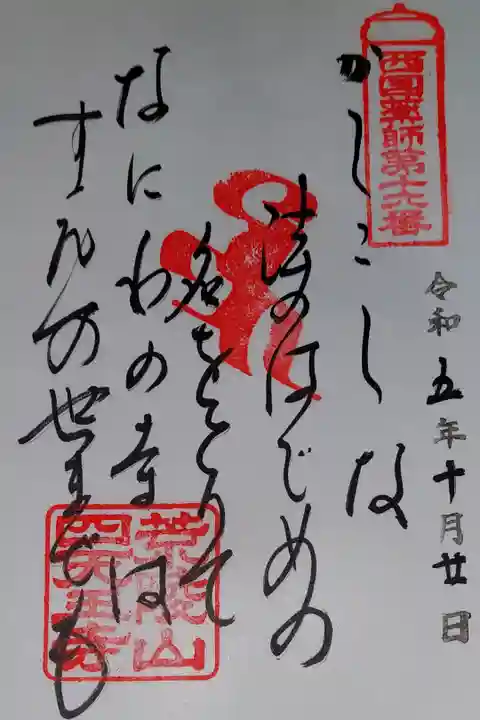 西國薬師第十六番
令和五年十月廿日
かしこしな
法のはじめの
名をとゞめて
なにわの寺は
すゑの世までも
荒陵山
四天王寺